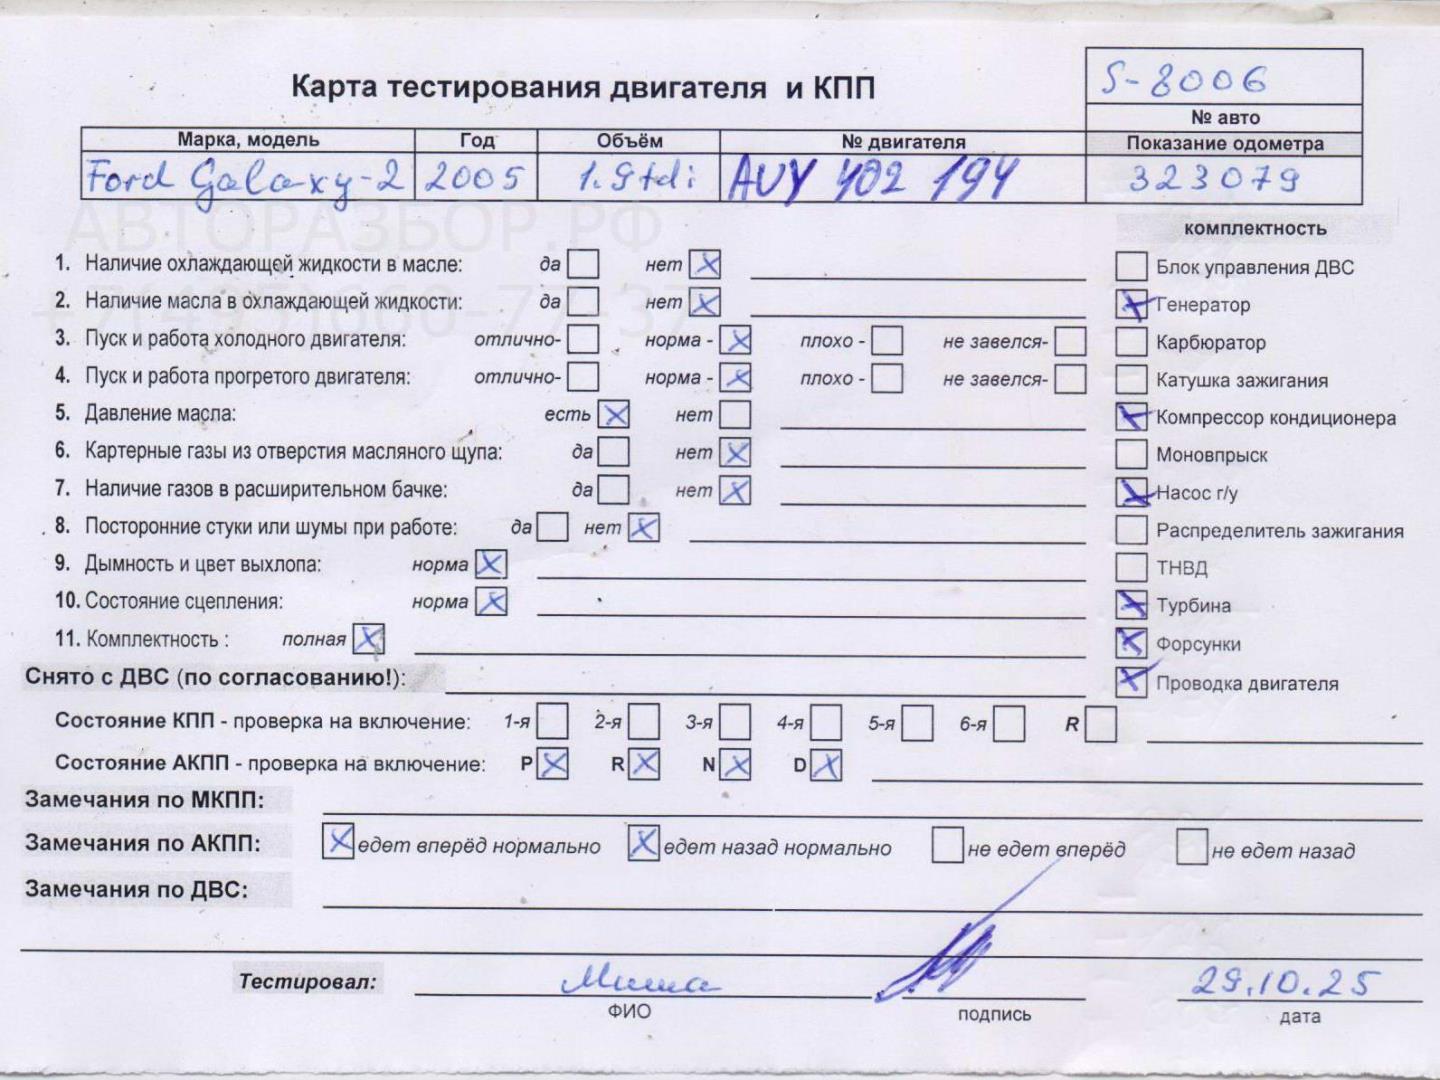 S-8006
Карта тестирования двигателя и КПП
№ авто
Марка, модель Год Объём № двигателя Показание одометра
Ford Galaxy-2 2005 1.9tdi AUY 402 194 323079
АВТОРАЗБОР.РФ
+7(495)660-77-37
комплектность
1. Наличие охлаждающей жидкости в масле: да нет
Блок управления ДВС
2. Наличие масла в охлаждающей жидкости: да нет
Генератор
3. Пуск и работа холодного двигателя: отлично- норма - плохо - не завелся-
Карбюратор
4. Пуск и работа прогретого двигателя: отлично- норма - плохо - не завелся-
Катушка зажигания
5. Давление масла: есть нет
Компрессор кондиционера
6. Картерные газы из отверстия масляного щупа: да нет
Моновпрыск
7. Наличие газов в расширительном бачке: да нет
Насос г/у
8. Посторонние стуки или шумы при работе: да нет
Распределитель зажигания
9. Дымность и цвет выхлопа: норма
ТНВД
10. Состояние сцепления: норма
Турбина
11. Комплектность : полная
Форсунки
Снято с ДВС (по согласованию!):
Проводка двигателя
Состояние КПП - проверка на включение: 1-я 2-я 3-я 4-я 5-я 6-я R
Состояние АКПП - проверка на включение: P R N D
Замечания по МКПП:
Замечания по АКПП: едет вперёд нормально едет назад нормально не едет вперёд не едет назад
Замечания по ДВС:
Тестировал: Миша 29.10.25
ФИО подпись дата